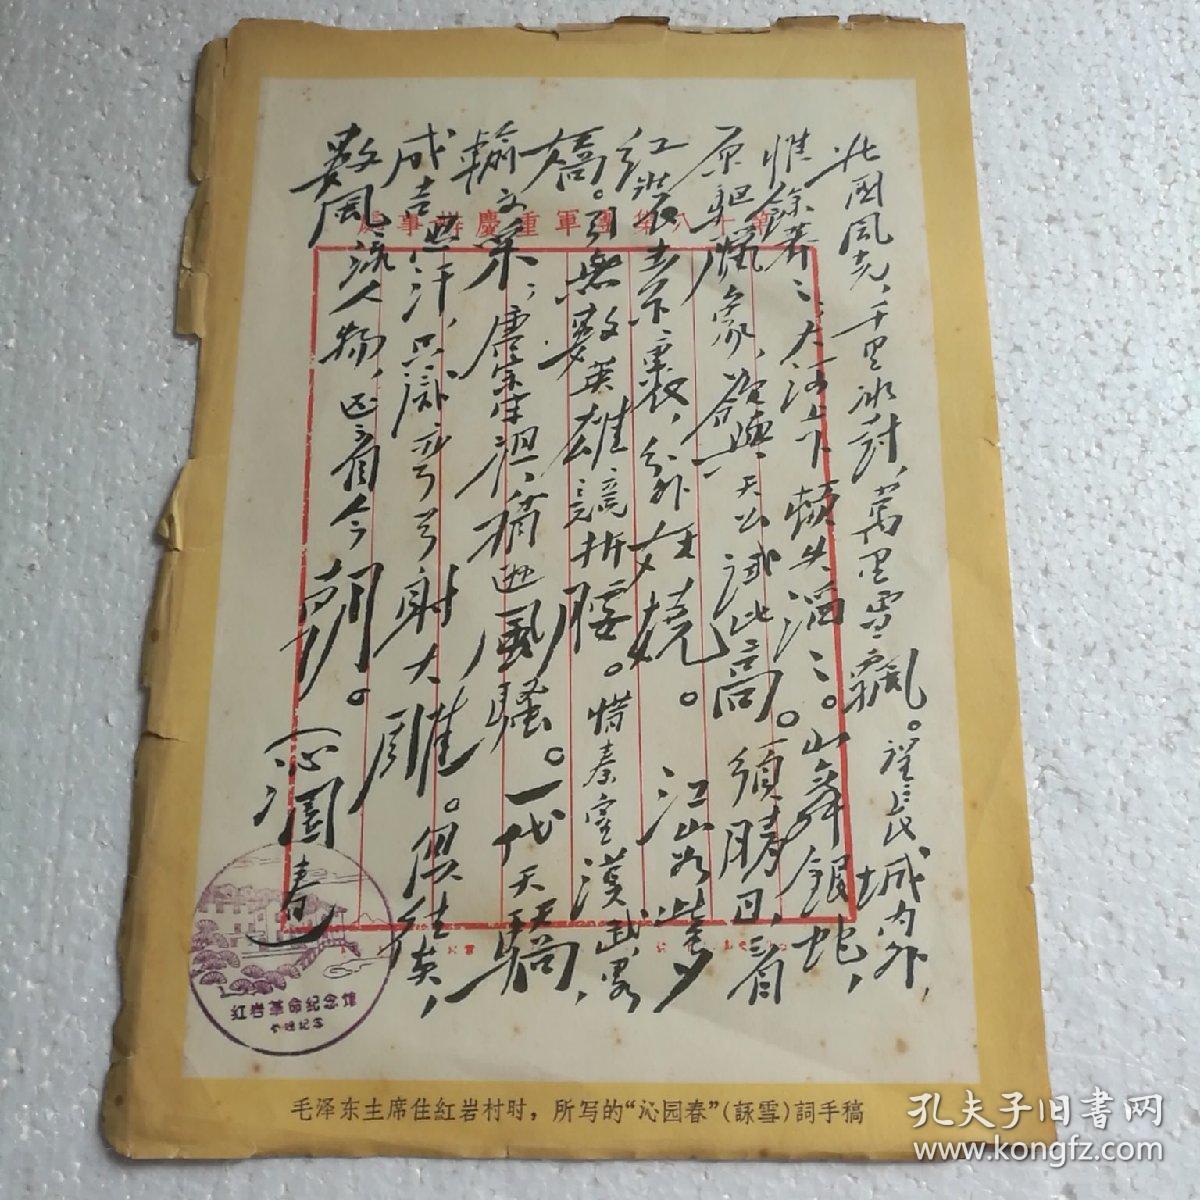 第十八集團軍重慶辦事處
北国風光，千里冰封，萬里雪飄。望長城内外，
惟餘莽〻；大河上下，頓失滔〻。山舞銀蛇，
原驅臘象，欲與天公試比高。須晴日，看
红裝素裹，分外妖嬈。江山如此多
嬌。引無數英雄競折腰。惜秦皇漢武，畧
輸文采；唐宗宋祖，稍遜風騷。一代天驕，
成吉思汗，只識彎弓射大雕。俱往矣，
數風流人物，还看今朝。
沁園春
红岩革命纪念馆
参观纪念
毛泽东主席住紅岩村时，所写的“沁园春”（詠雪）詞手稿
孔夫子旧书网
www.kongfz.com